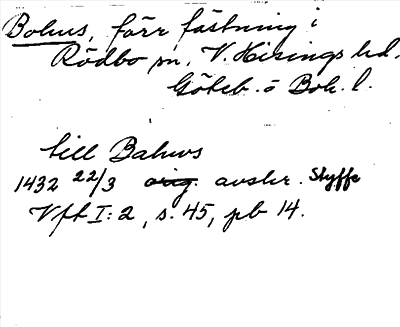 Bohus, förr fästning i
Rödbo sn. V. Hisings hd.
Göteb. o Boh. l.
till Bahws
1432 22/3 orig. avskr. Styffe
Vft I: 2, s. 45, pb 14.